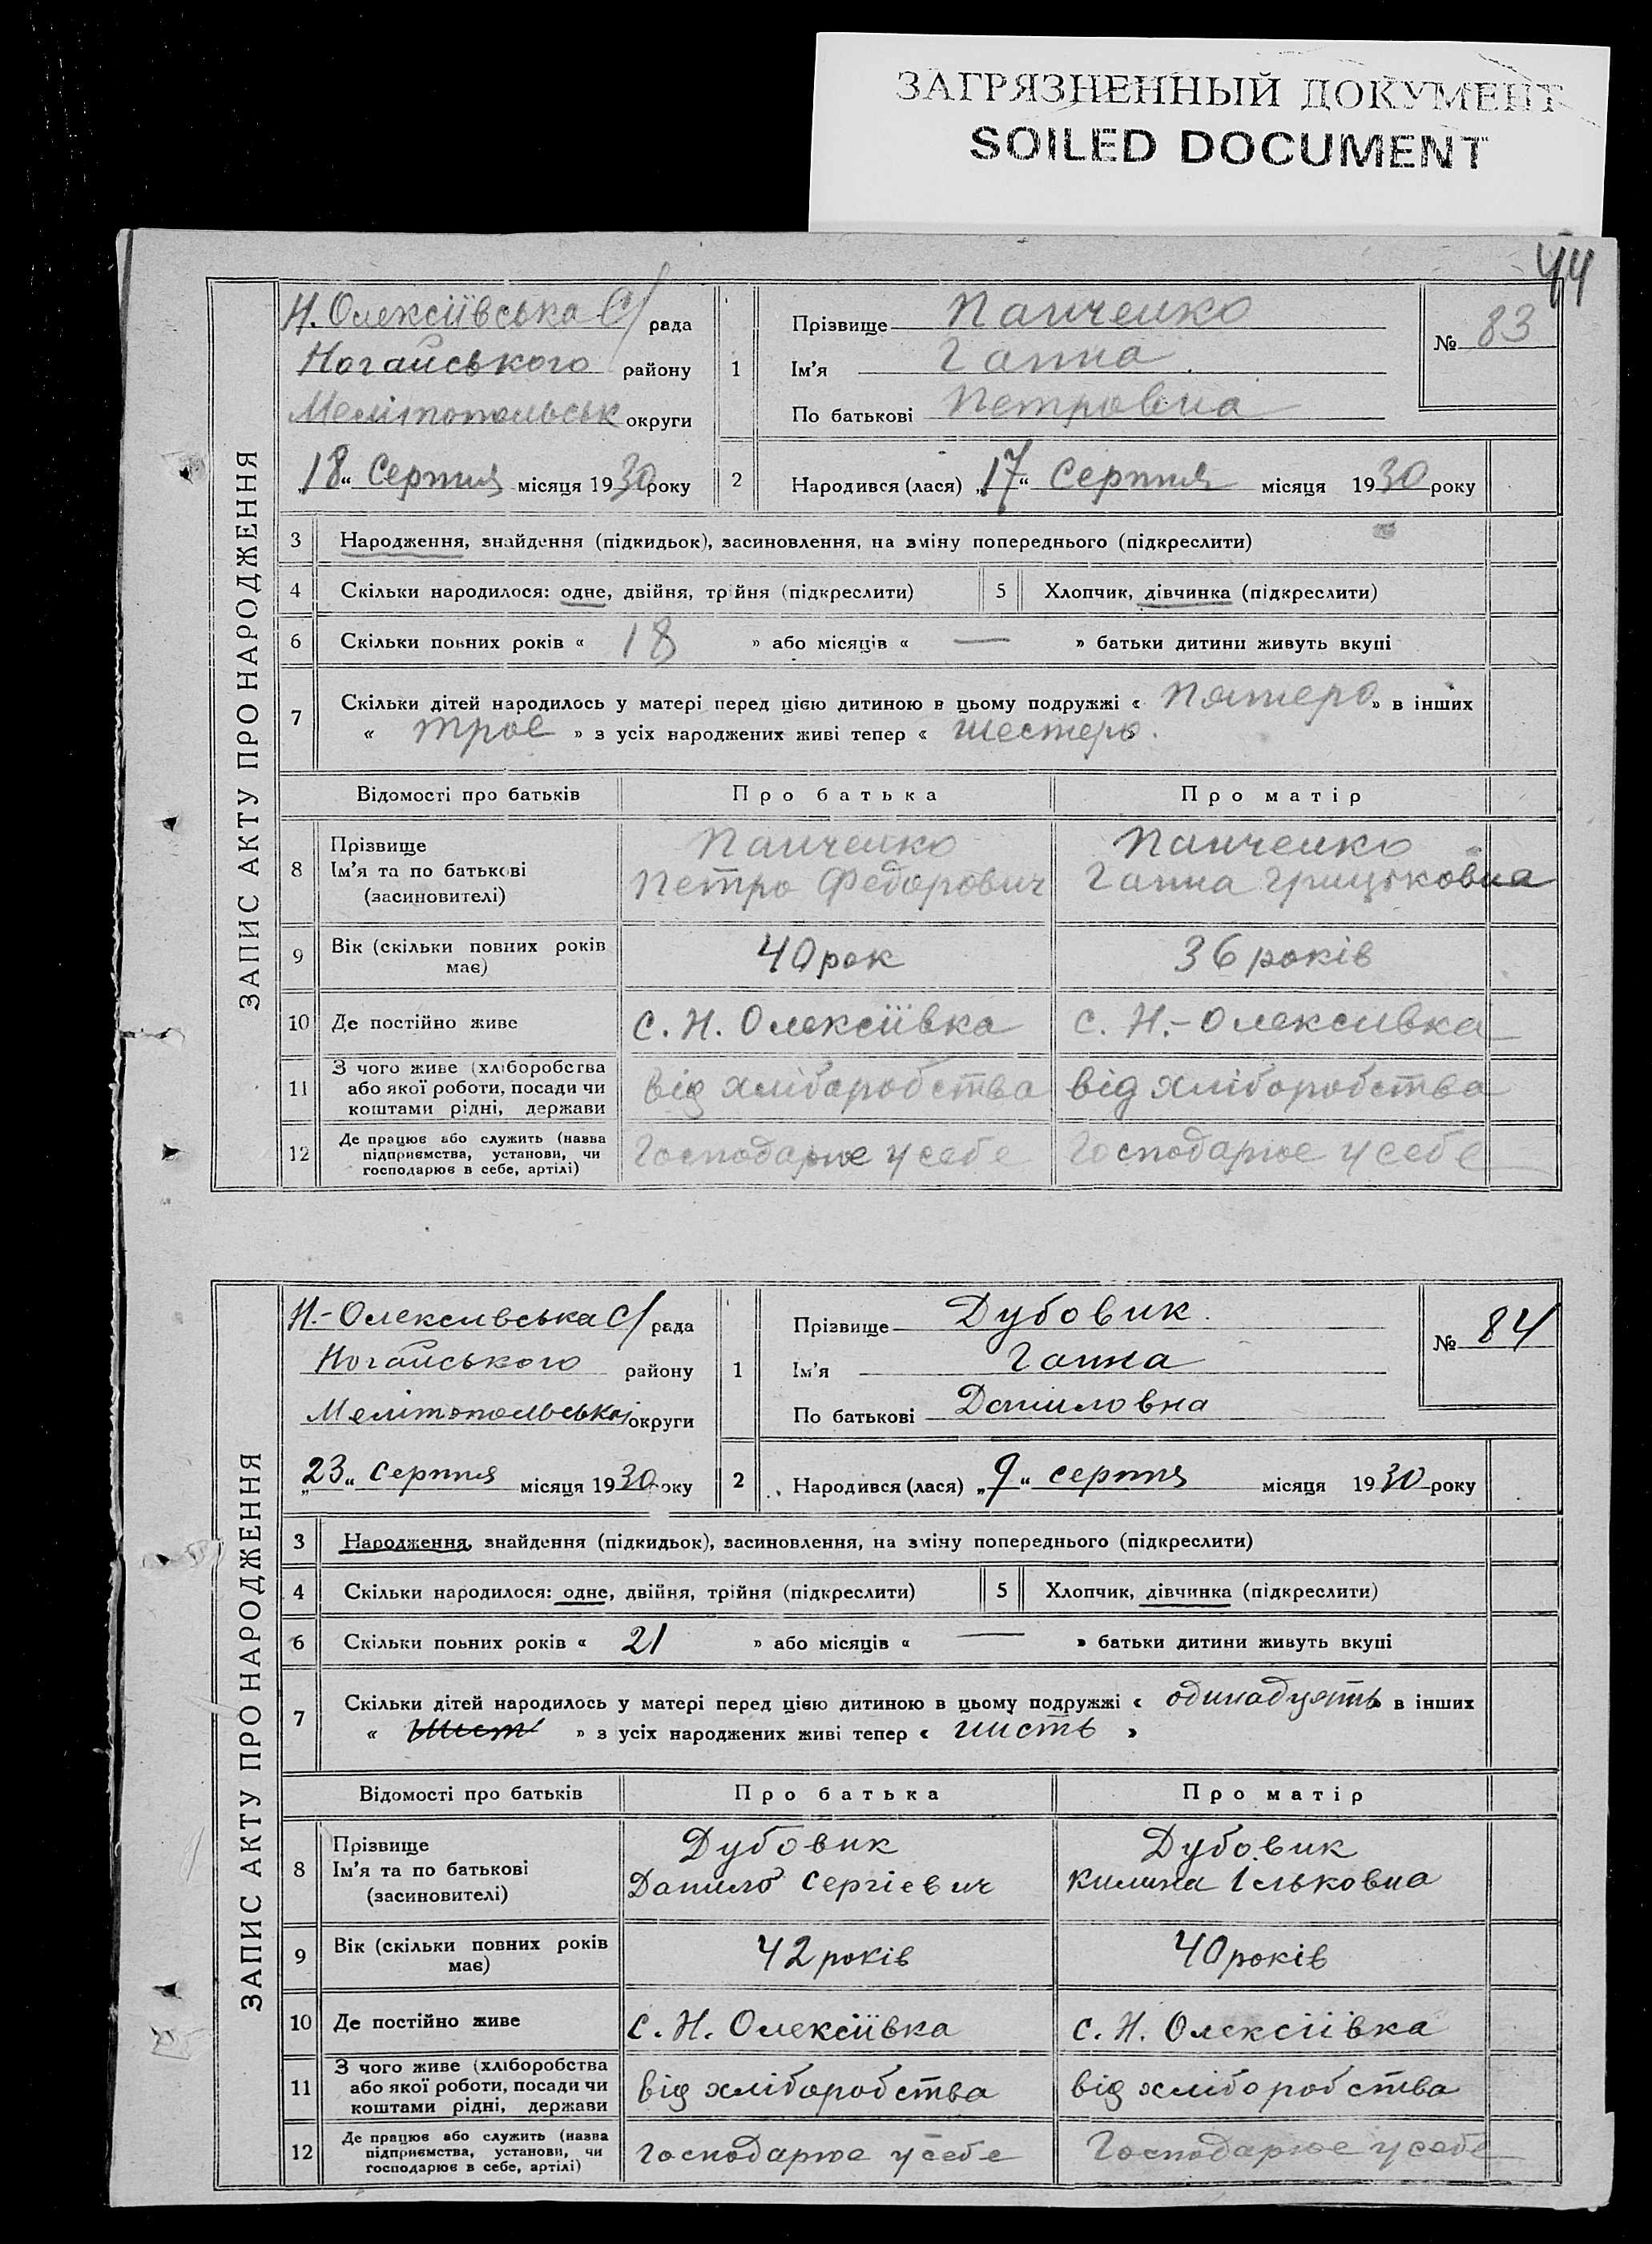 ЗАГРЯЗНЕННЫЙ ДОКУМЕНТ
SOILED DOCUMENT
44
ЗАПИС АКТУ ПРО НАРОДЖЕННЯ
Н. Олексіївська С/рада
Ногайського району
Мелітопольськ округи
„18“ Серпня місяця 1930 року
1 Прізвище Панченко
Ім'я Ганна
По батькові Петровна
№ 83
2 Народився (лася) „17“ Серпня місяця 1930 року
3 Народження, знайдення (підкидьок), засиновлення, на зміну попереднього (підкреслити)
4 Скільки народилося: одне, двійня, трійня (підкреслити) 5 Хлопчик, дівчинка (підкреслити)
6 Скільки повних років « 18 » або місяців « — » батьки дитини живуть вкупі
7 Скільки дітей народилось у матері перед цією дитиною в цьому подружжі « Пятеро » в інших
« трое » з усіх народжених живі тепер « шестеро.
Відомості про батьків Про батька Про матір
8 Прізвище Панченко Панченко
Ім'я та по батькові Петро Федорович Ганна Грицьковна
(засиновителі)
9 Вік (скільки повних років 40 рок 36 років
має)
10 Де постійно живе с. Н. Олексіївка с. Н.-Олексивка
11 З чого живе (хліборобства
або якої роботи, посади чи від хліборобства від хліборобства
коштами рідні, держави
12 Де працює або служить (назва
підприємства, установи, чи Господарює у себе Господарює у себе
господарює в себе, артілі)
ЗАПИС АКТУ ПРО НАРОДЖЕННЯ
Н.-Олексивська С/рада
Ногайського району
Мелітопольської округи
„23“ Серпня місяця 1930 року
1 Прізвище Дубовик.
Ім'я Ганна
По батькові Даниловна
№ 84
2 Народився (лася) „9“ серпня місяця 1930 року
3 Народження, знайдення (підкидьок), засиновлення, на зміну попереднього (підкреслити)
4 Скільки народилося: одне, двійня, трійня (підкреслити) 5 Хлопчик, дівчинка (підкреслити)
6 Скільки повних років « 21 » або місяців « — » батьки дитини живуть вкупі
7 Скільки дітей народилось у матері перед цією дитиною в цьому подружжі « одинадцять » в інших
« шист » з усіх народжених живі тепер « шисть »
Відомості про батьків Про батька Про матір
8 Прізвище Дубовик Дубовик
Ім'я та по батькові Данило Сергієвич Килина Ільковна
(засиновителі)
9 Вік (скільки повних років 42 років 40 років
має)
10 Де постійно живе с. Н. Олексіївка с. Н. Олексіївка
11 З чого живе (хліборобства
або якої роботи, посади чи від хліборобства від хліборобства
коштами рідні, держави
12 Де працює або служить (назва
підприємства, установи, чи Господарює у себе Господарює у себе
господарює в себе, артілі)